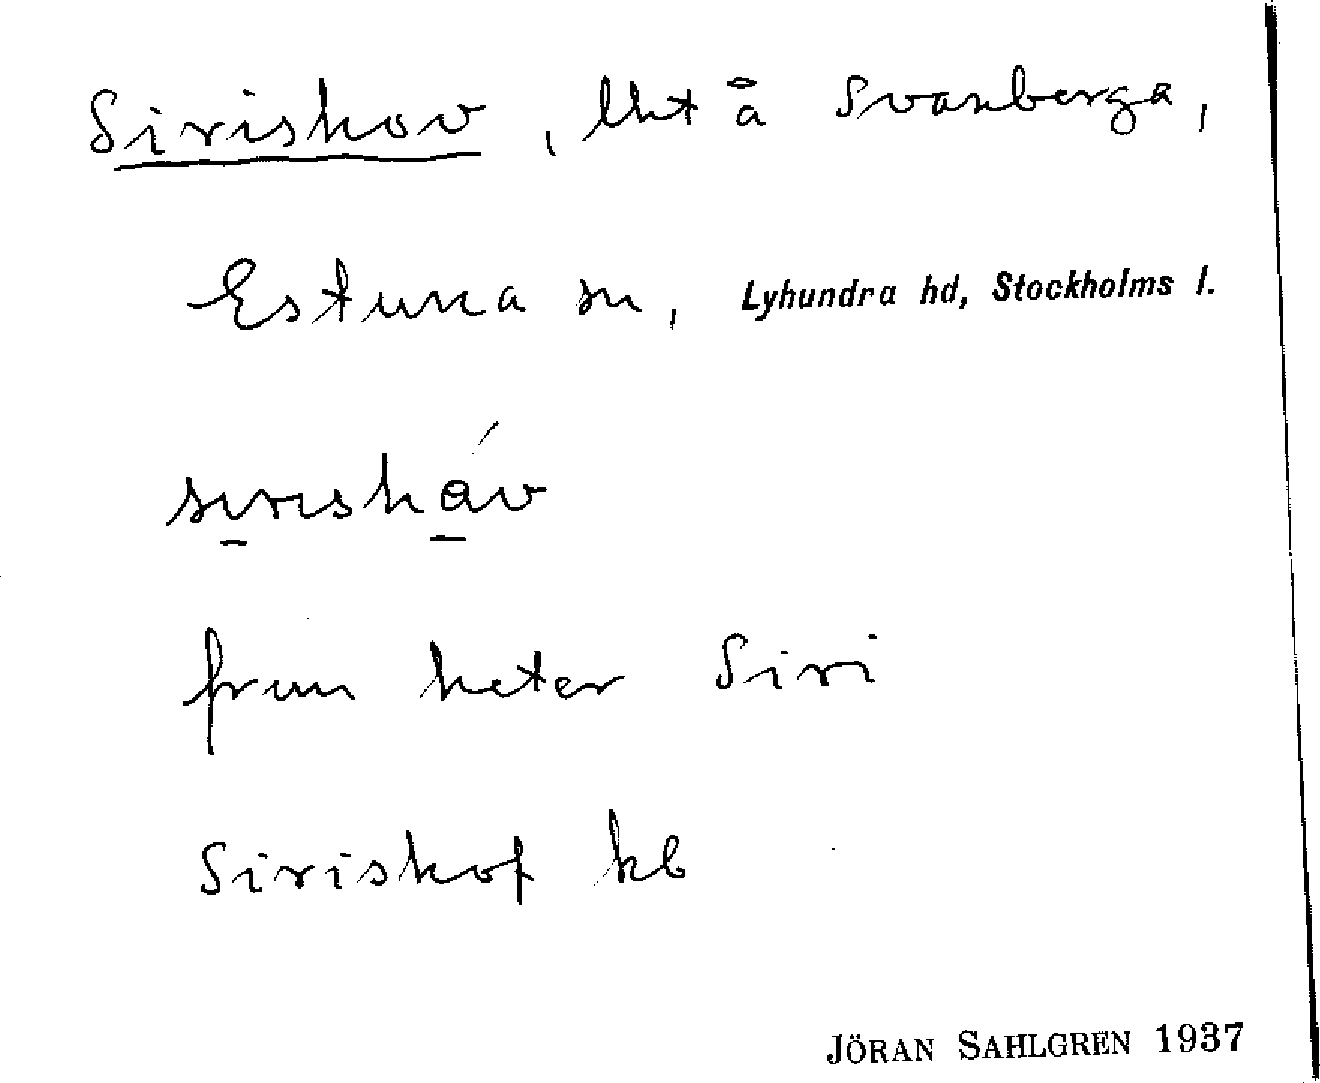 Sirishov, lht å Svanberga,
Estuna sn, Lyhundra hd, Stockholms l.
sırıshåv
frun heter Siri
Sirishof kb
JÖRAN SAHLGREN 1937